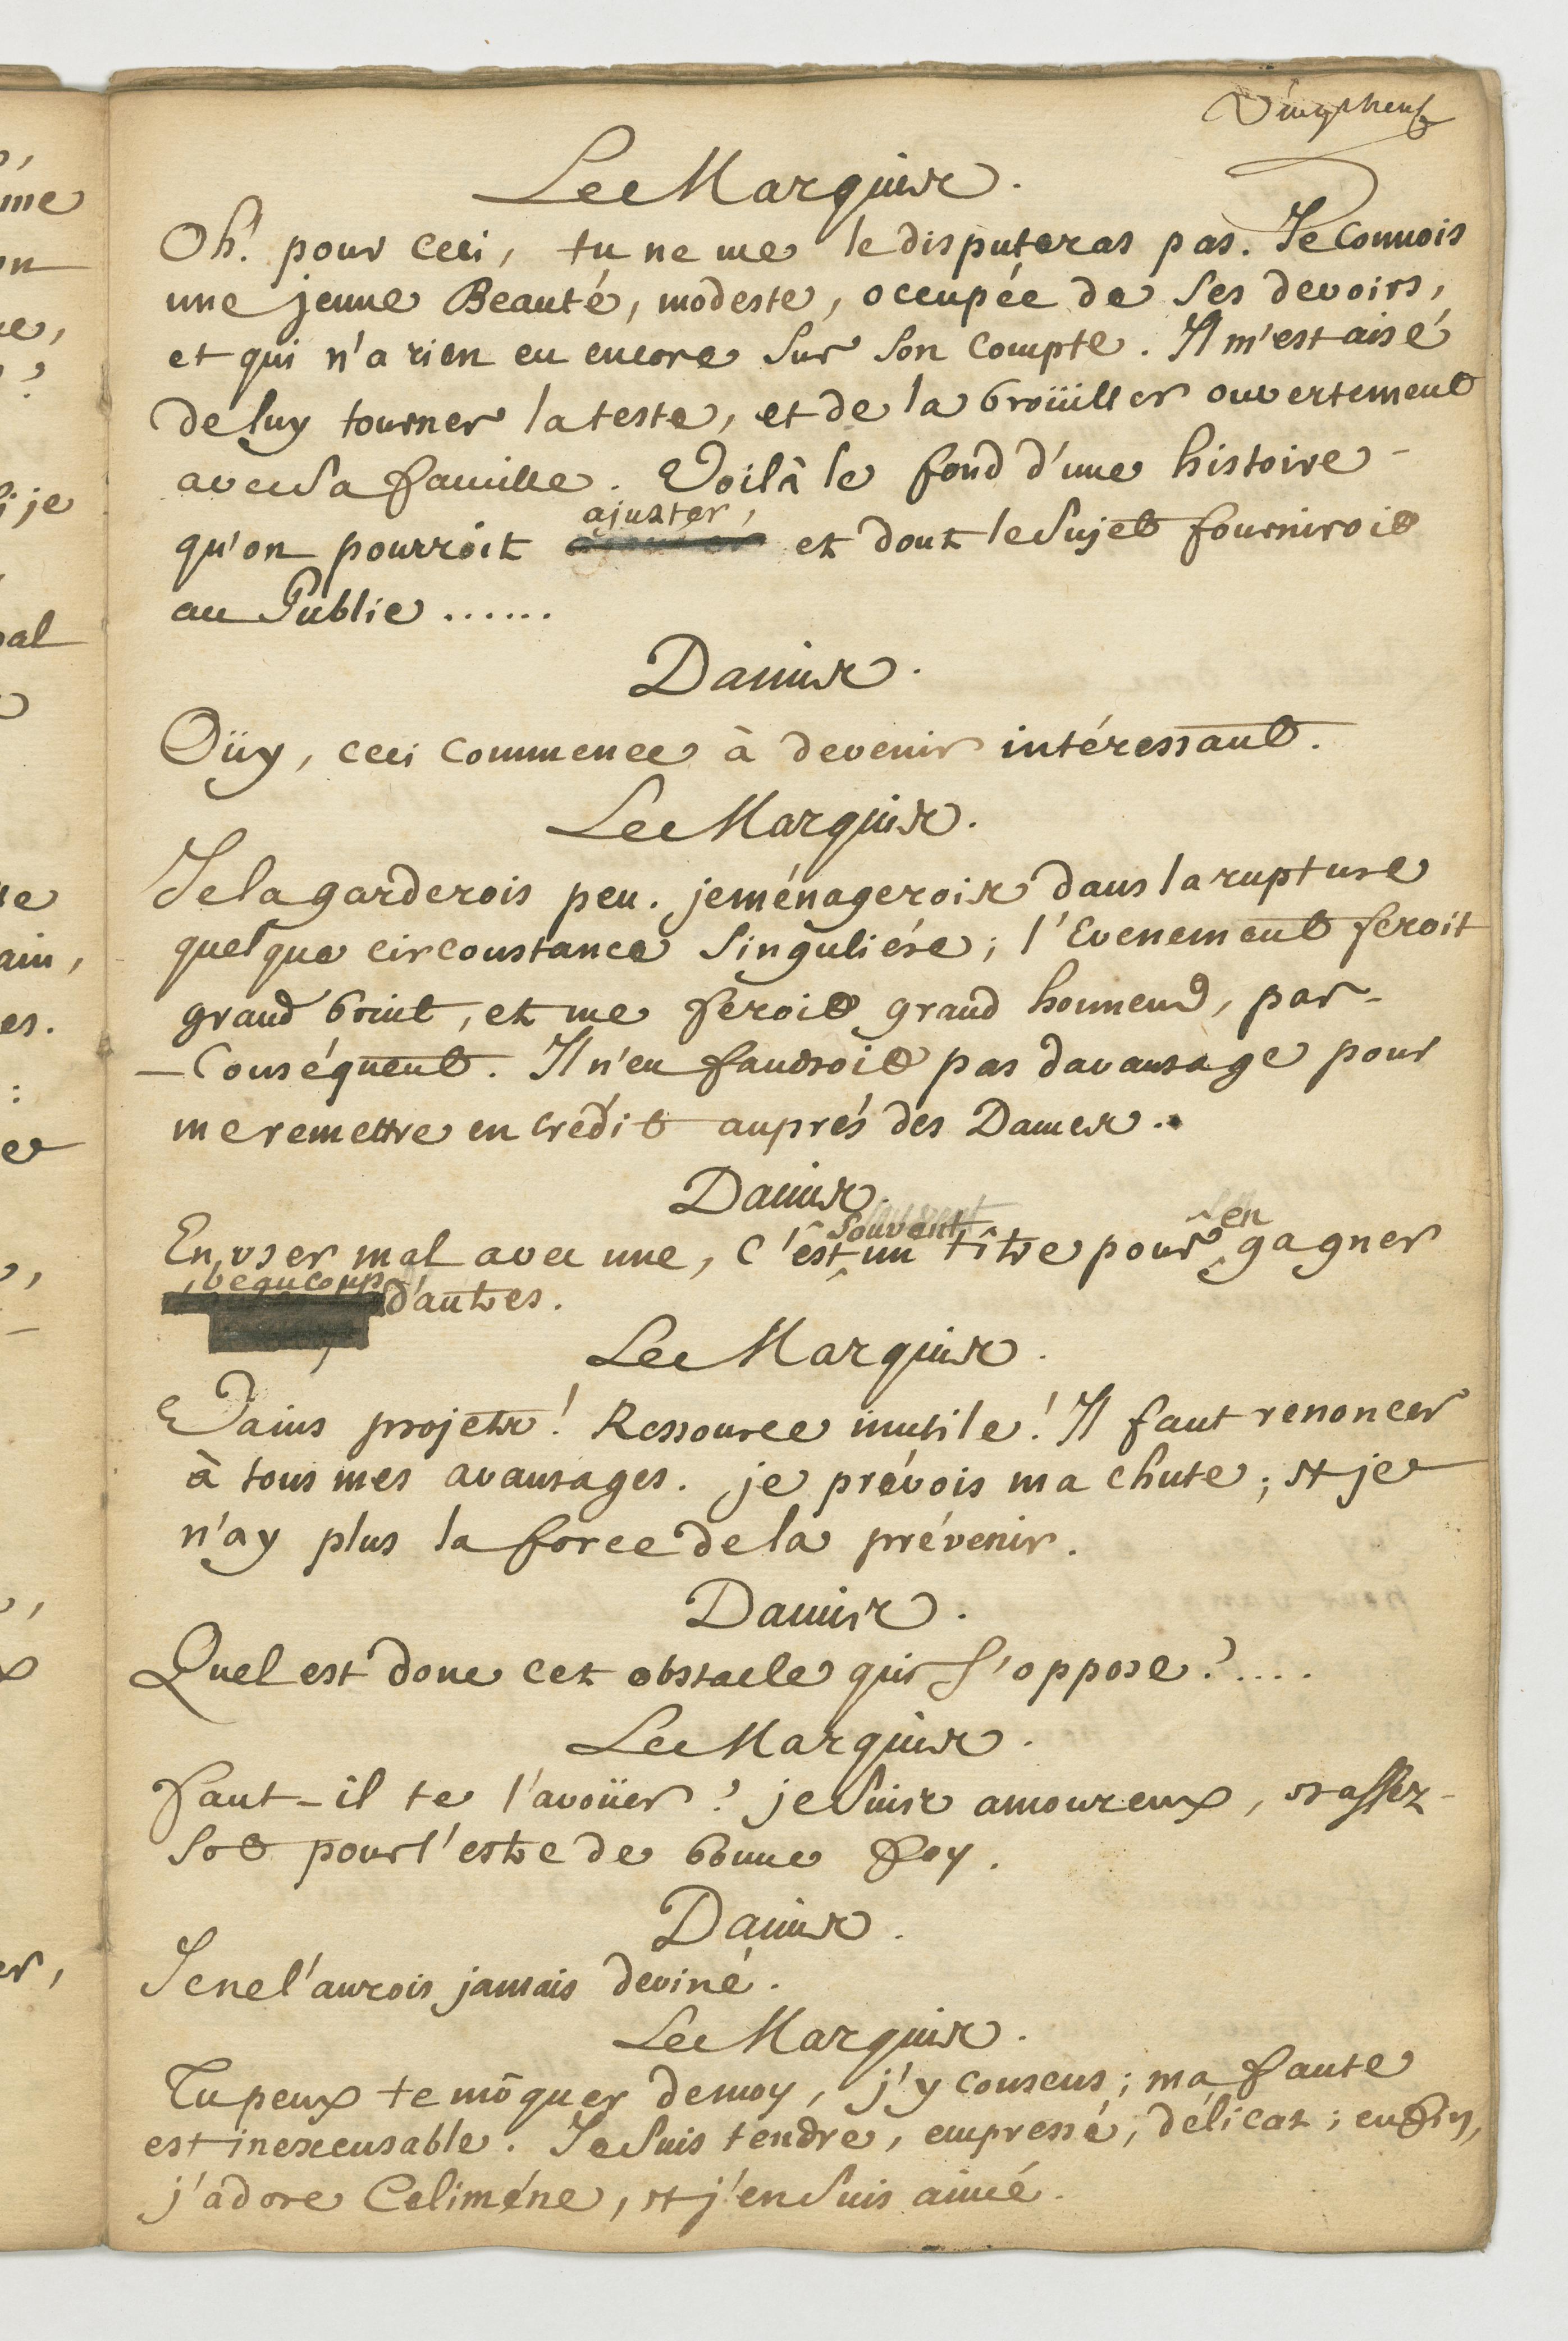 Vingt neuf
Le Marquis.
Oh! pour ceci, tu ne me le disputeras pas. Je Connois
une jeune Beauté, modeste, occupée de Ses devoirs,
et qui n'a rien eu encore Sur Son Compte. Il m'est aisé
de luy tourner la teste, et de la broüiller ouvertement
avec Sa famille. Voilà le fond d'une histoire
qu'on pourroit ajuster, et dont le Sujet fourniroit
au Public ......
Damis.
Oüy, ceci Commence à devenir intéressant.
Le Marquis.
Je la garderois peu. je ménagerois dans la rupture
quelque circonstance Singuliére; l'Evenement feroit
grand bruit, et me feroit grand honneur, par-
-Conséquent. Il n'en faudroit pas davantage pour
me remettre en crédit auprés des Dames.
Damis.
En user mal avec une, C'est Souvent un tître pour en gagner
beaucoup d'autres.
Le Marquis.
Vains projets! Ressource inutile! Il faut renoncer
à tous mes avantages. je prévois ma chute; et je
n'ay plus la force de la prévenir.
Damis.
Quel est donc cet obstacle qui S'oppose?....
Le Marquis.
Faut-il te l'avoüer? je Suis amoureux, et assez
Sot pour l'estre de bonne foy.
Damis.
Je ne l'aurois jamais deviné.
Le Marquis.
Tu peux te môquer de moy, j'y consens; ma faute
est inexcusable. Je Suis tendre, empressé, délicat; enfin,
j'adore Celiméne, et j'en Suis aimé.